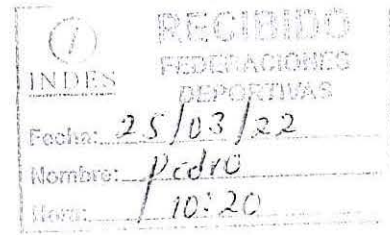 RECIBIDO
INDES
FEDERACIONES
DEPORTIVAS
Fecha: 25/03/22
Nombre: Pedro
Hora: 10:20